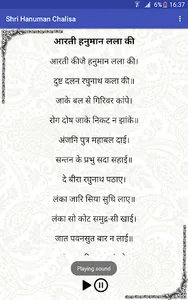 16:37
Shri Hanuman Chalisa
आरती हनुमान लला की
आरती कीजै हनुमान लला की।
दुष्ट दलन रघुनाथ कला की॥
जाके बल से गिरिवर कांपे।
रोग दोष जाके निकट न झांके॥
अंजनि पुत्र महाबल दाई।
सन्तन के प्रभु सदा सहाई॥
दे बीरा रघुनाथ पठाए।
लंका जारि सिया सुधि लाए॥
लंका सो कोट समुद्र-सी खाई।
जात पवनसुत बार न लाई॥
Playing sound